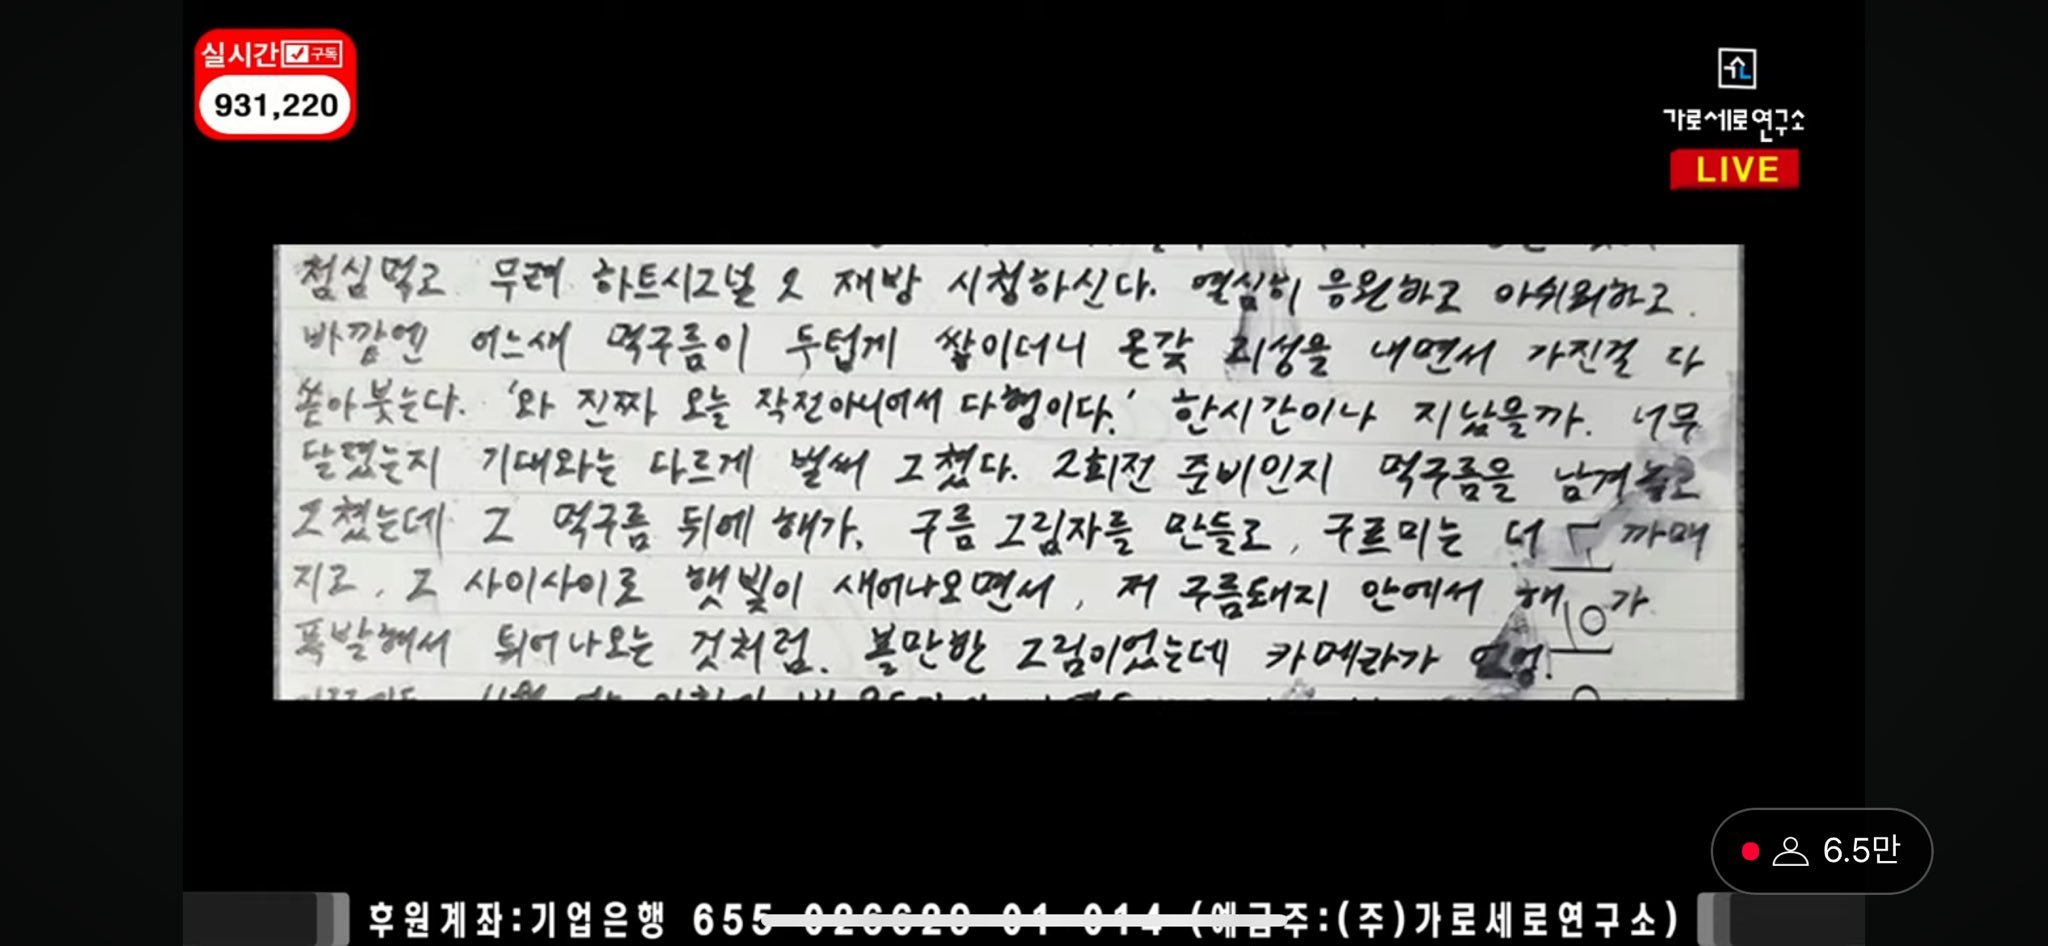 실시간 구독
931,220
가로세로연구소
LIVE
점심먹고 무려 하트시그널 2 재방 시청하신다. 열심히 응원하고 아쉬워하고.
바깥엔 어느새 먹구름이 두텁게 쌓이더니 온갖 괴성을 내면서 가진걸 다
쏟아붓는다. '와 진짜 오늘 작전아니어서 다행이다.' 한시간이나 지났을까. 너무
달렸는지 기대와는 다르게 벌써 그쳤다. 2회전 준비인지 먹구름을 남겨놓고
그쳤는데 그 먹구름 뒤에 해가, 구름 그림자를 만들고, 구르미는 더 까매
지고, 그 사이사이로 햇빛이 새어나오면서, 저 구름돼지 안에서 해가
폭발해서 튀어나오는 것처럼. 볼만한 그림이었는데 카메라가
6.5만
후원계좌:기업은행 655 (예금주:(주)가로세로연구소)